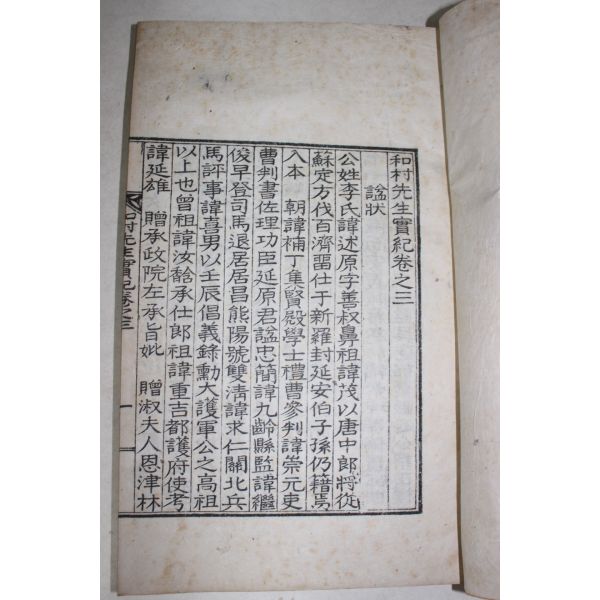 和村先生實紀卷之三
諡狀
公姓李氏諱述原字善叔鼻祖諱茂以唐中郎將從
蘇定方伐百濟畱仕于新羅封延安伯子孫仍籍焉
入本 朝諱補丁集賢殿學士禮曹參判諱崇元吏
曹判書佐理功臣延原君諡忠簡諱九齡縣監諱繼
俊早登司馬退居居昌熊陽號雙淸諱求仁關北兵
馬評事諱喜男以壬辰倡義錄勳大護軍公之高祖
以上也曾祖諱汝馠承仕郎祖諱重吉都護府使考
諱延雄 贈承政院左承旨妣 贈淑夫人恩津林
和村先生實紀卷之三 一